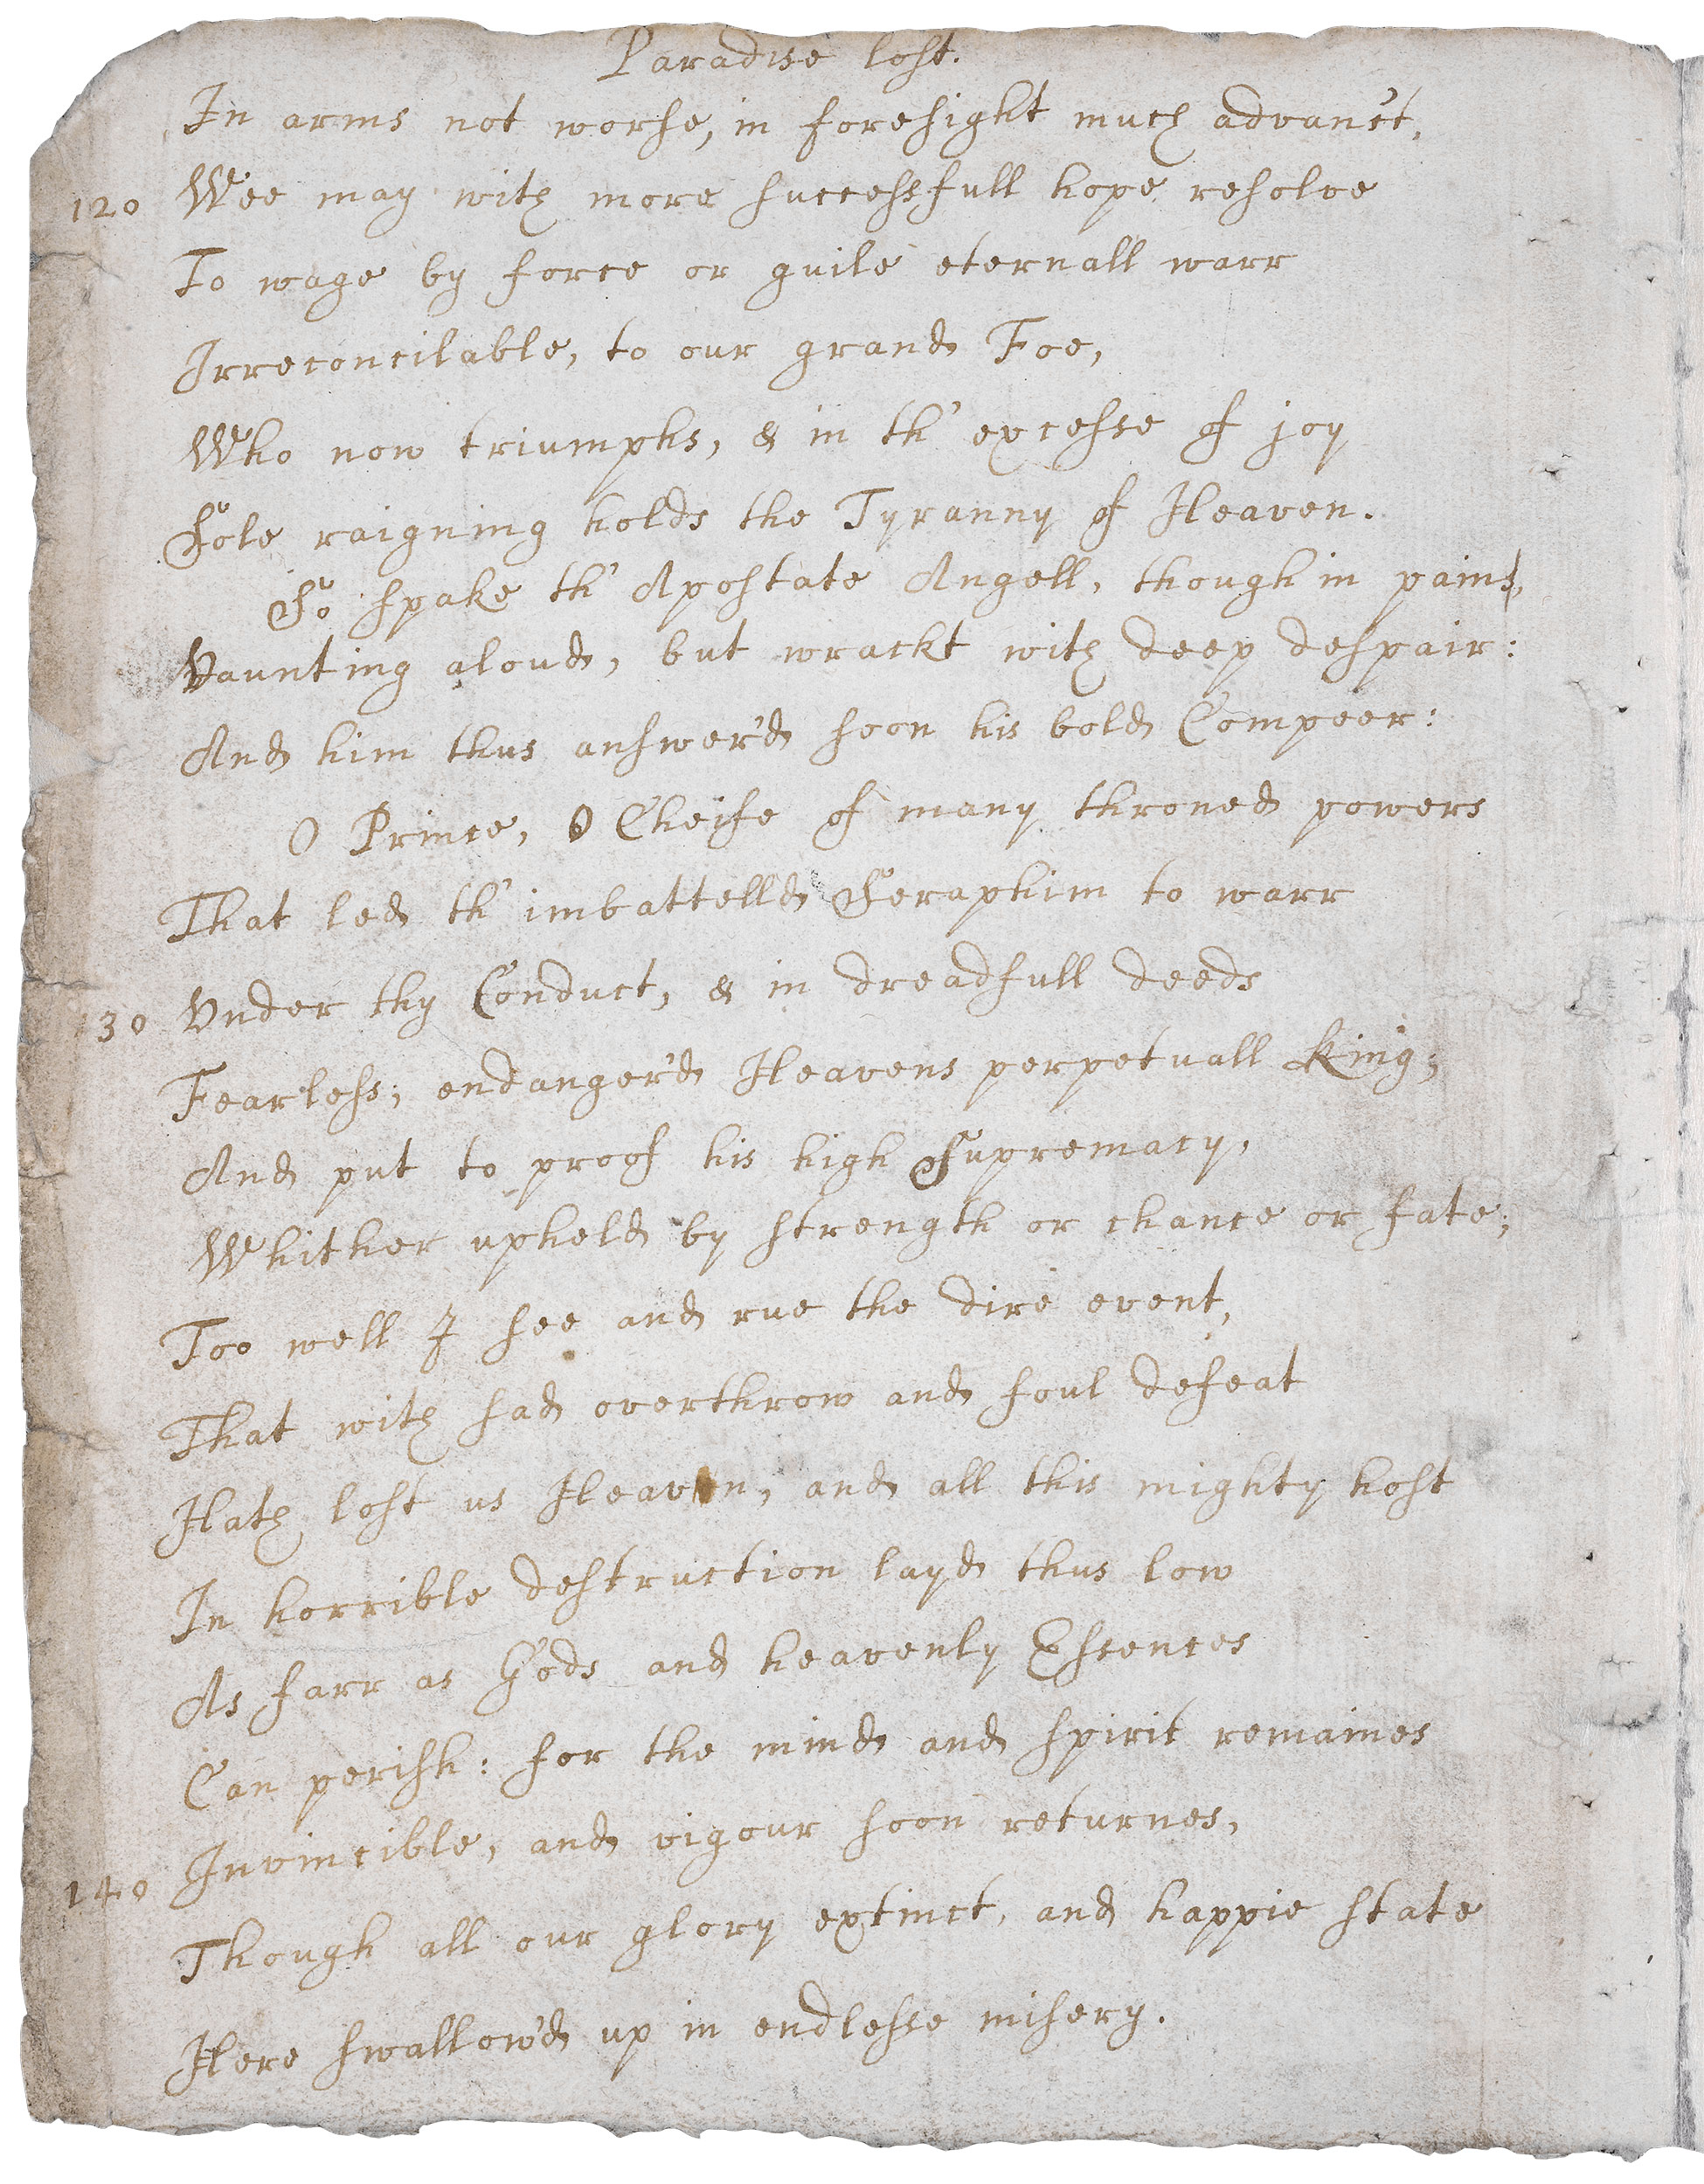 Paradise lost.
In arms not worse, in foresight much advan'ct,
120 Wee may with more successfull hope resolve
To wage by force or guile eternall warr
Irreconcilable, to our grand Foe,
Who now triumphs, & in th' excesse of joy
Sole raigning holds the Tyranny of Heaven.
So spake th' Apostate Angell, though in paine,
Vaunting aloud, but wrackt with deep despair:
And him thus answer'd soon his bold Compeer:
O Prince, O Cheife of many throned powers
That led th' imbattelld Seraphim to warr
130 Vnder thy Conduct, & in dreadfull deeds
Fearless; endanger'd Heavens perpetuall King;
And put to proof his high Supremacy,
Whither upheld by strength or chance or fate;
Too well I see and rue the dire event,
That with sad overthrow and foul defeat
Hath lost us Heaven, and all this mighty host
In horrible destruction layd thus low
As farr as Gods and heavenly Escences
Can perish: for the mind and spirit remaines
140 Invincible, and vigour soon returnes,
Though all our glory extinct, and happie state
Here swallow'd up in endlesse misery.